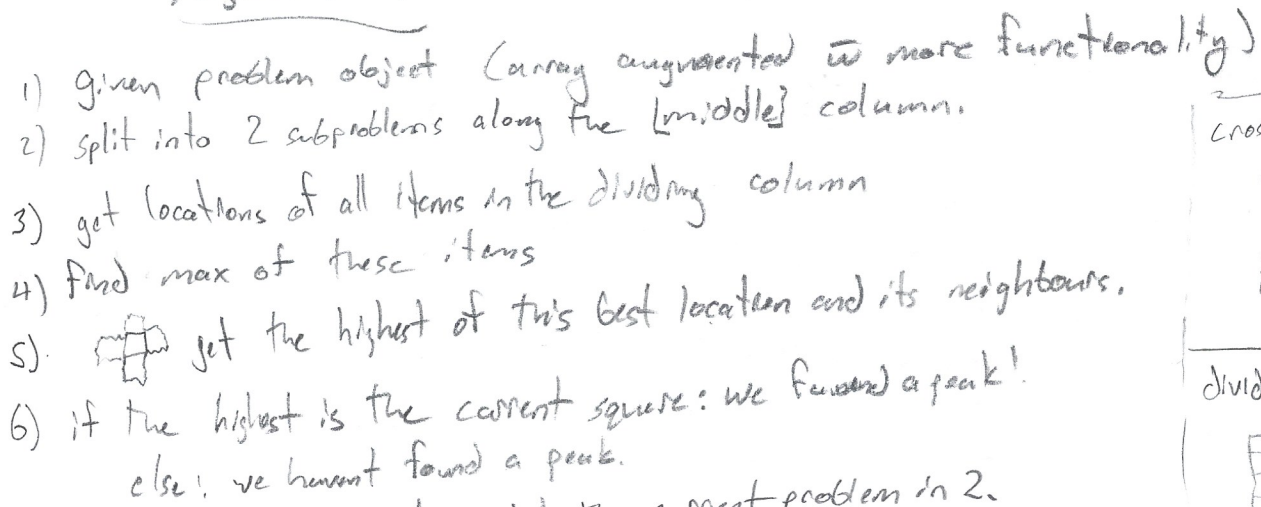 1) given problem object (array augmented w̄ more functionality)
2) split into 2 subproblems along the [middle] column.
3) get locations of all items in the dividing column
4) find max of these items
5). get the highest of this best location and its neighbours.
6) if the highest is the current square: we found a peak!
else: we havent found a peak.
problem in 2.
cros
divid